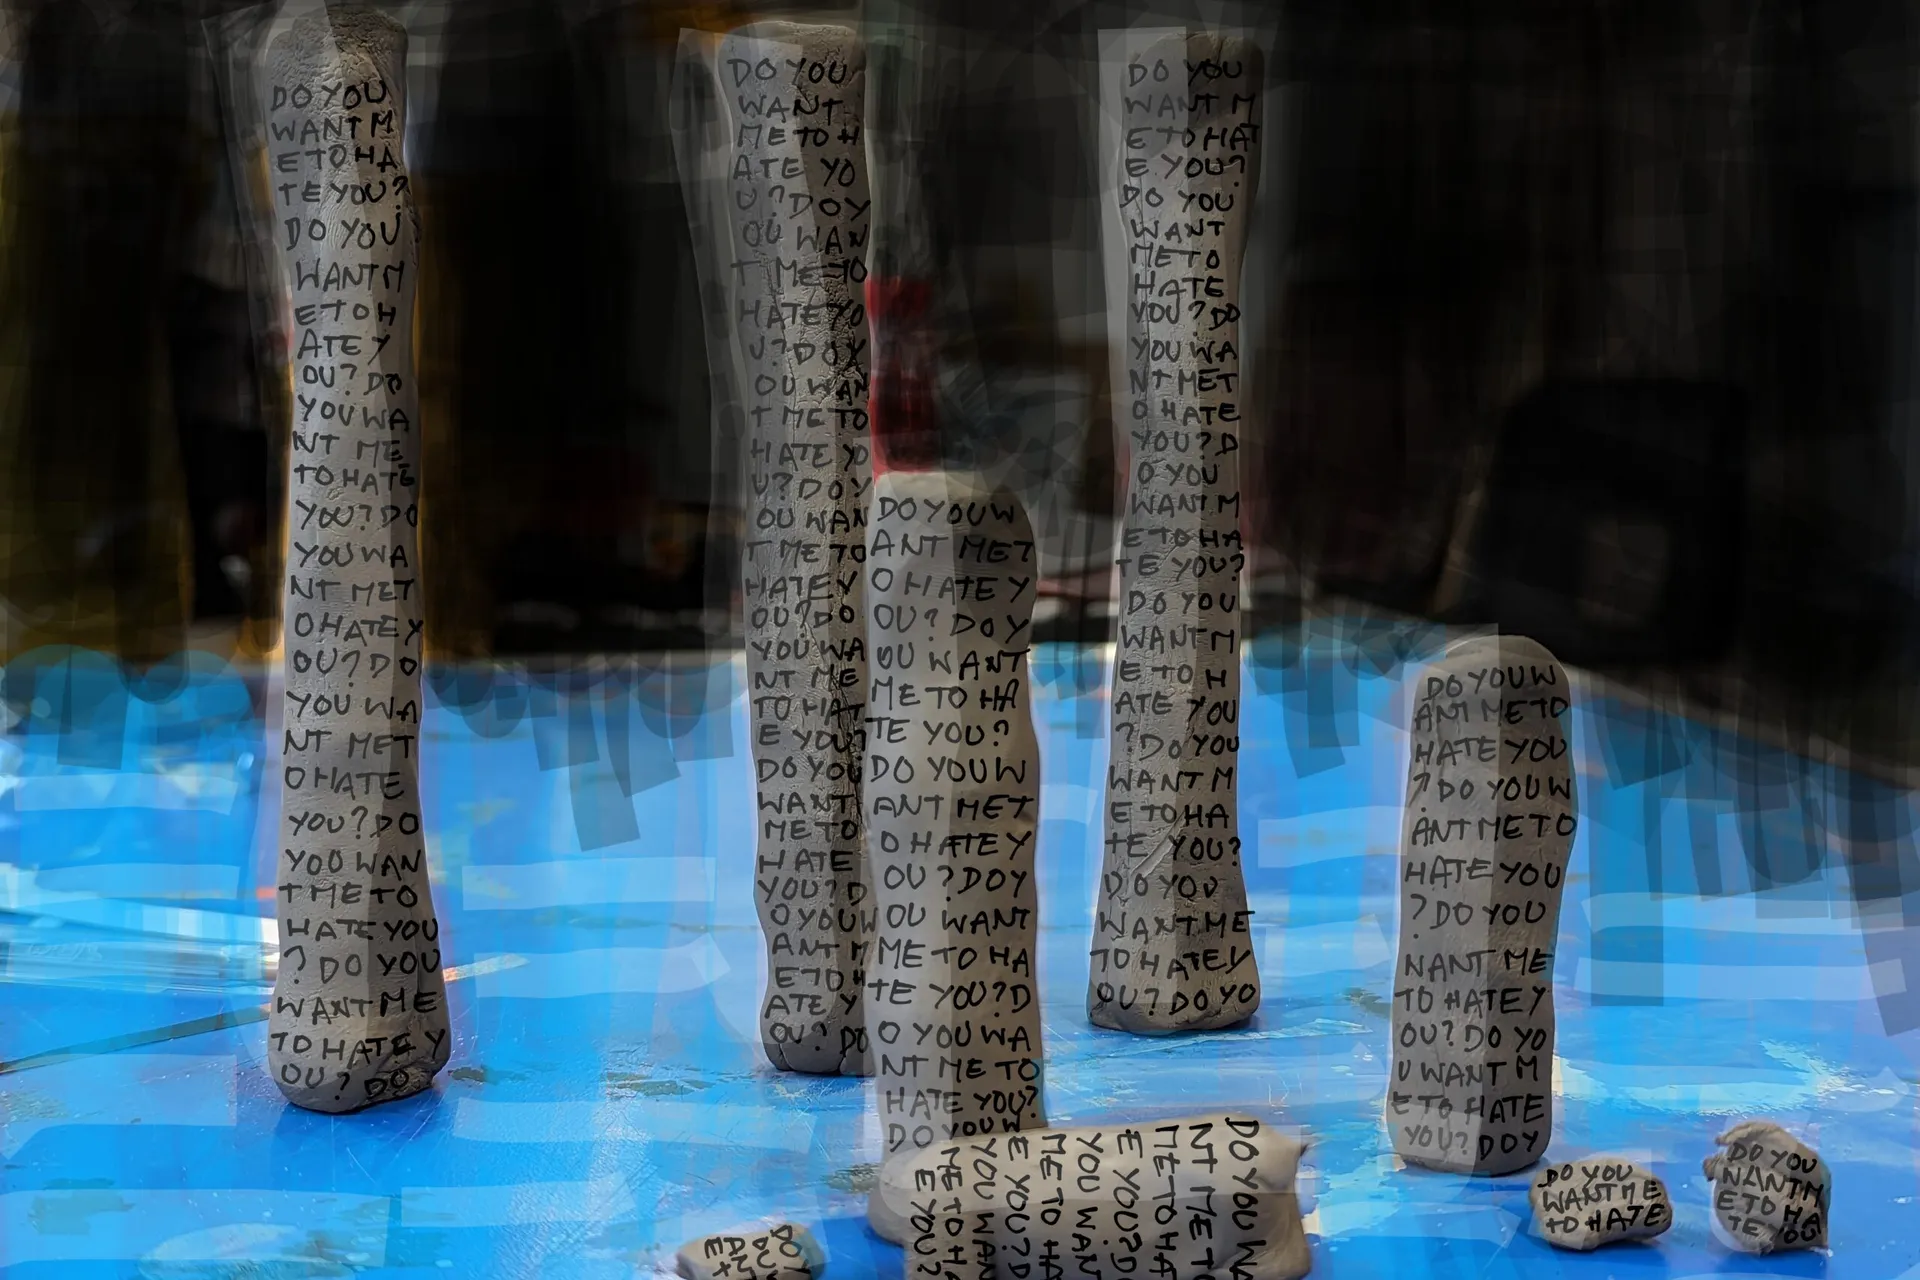 DO YOU
WANT M
ETOHA
TE YOU?
DO YOU
WANT M
ETOH
ATE Y
OU? DO
YOU WA
NT ME
TO HATE
YOU? DO
YOU WA
NT MET
OHATEY
OU? DO
YOU WA
NT MET
OHATE
YOU? DO
YOU WAN
T ME TO
HATE YOU
? DO YOU
WANT ME
TO HATE Y
OU? DO
DO YOU
WANT
ME TO H
ATE YO
U? DOY
OU WAN
T ME TO
HATE YO
U? DOY
OU WAN
T ME TO
HATE YO
U? DOY
OU WAN
T ME TO
HATE Y
OU? DO
YOU WA
NT ME
TO HAT
E YOU?
DO YOU
WANT
ME TO
HATE
YOU? D
O YOU W
ANT M
E TO H
ATE Y
OU? DO
DO YOU W
ANT MET
OHATE Y
OU? DOY
OU WANT
ME TO HA
TE YOU?
DO YOU W
ANT MET
OHATE Y
OU? DOY
OU WANT
ME TO HA
TE YOU? D
O YOU WA
NT ME TO
HATE YOU?
DO YOU W
DO YOU
WANT M
E TO HAT
E YOU?
DO YOU
WANT
ME TO
HATE
YOU? DO
YOU WA
NT MET
O HATE
YOU? D
O YOU
WANT M
E TO HA
TE YOU?
DO YOU
WANT M
E TO H
ATE YOU
? DO YOU
WANT M
E TO HA
TE YOU?
DO YOU
WANT ME
TO HATEY
OU? DO YO
DO YOU W
ANT METO
HATE YOU
? DO YOU W
ANT METO
HATE YOU
? DO YOU
WANT ME
TO HATE Y
OU? DO YO
U WANT M
E TO HATE
YOU? DOY
DO YOU WA
NT ME TO
METOHA
E YOU? D
YOU WANT
ME TO HA
E YOU? D
YOU WAN
METOH
E YOU?
DOY
OUW
ANT
ET
DO YOU
WANT ME
TO HATE
DO YOU
WANT M
E TO HA
TE YOU